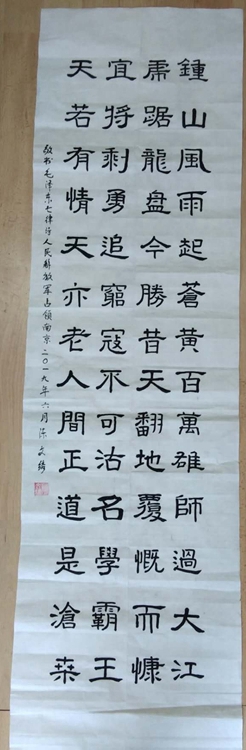 鍾山風雨起蒼黃百萬雄師過大江
虎踞龍盤今勝昔天翻地覆慨而慷
宜將剩勇追窮寇不可沽名學霸王
天若有情天亦老人間正道是滄桒
敬书毛泽东七律诗人民解放军占领南京二〇一九年六月